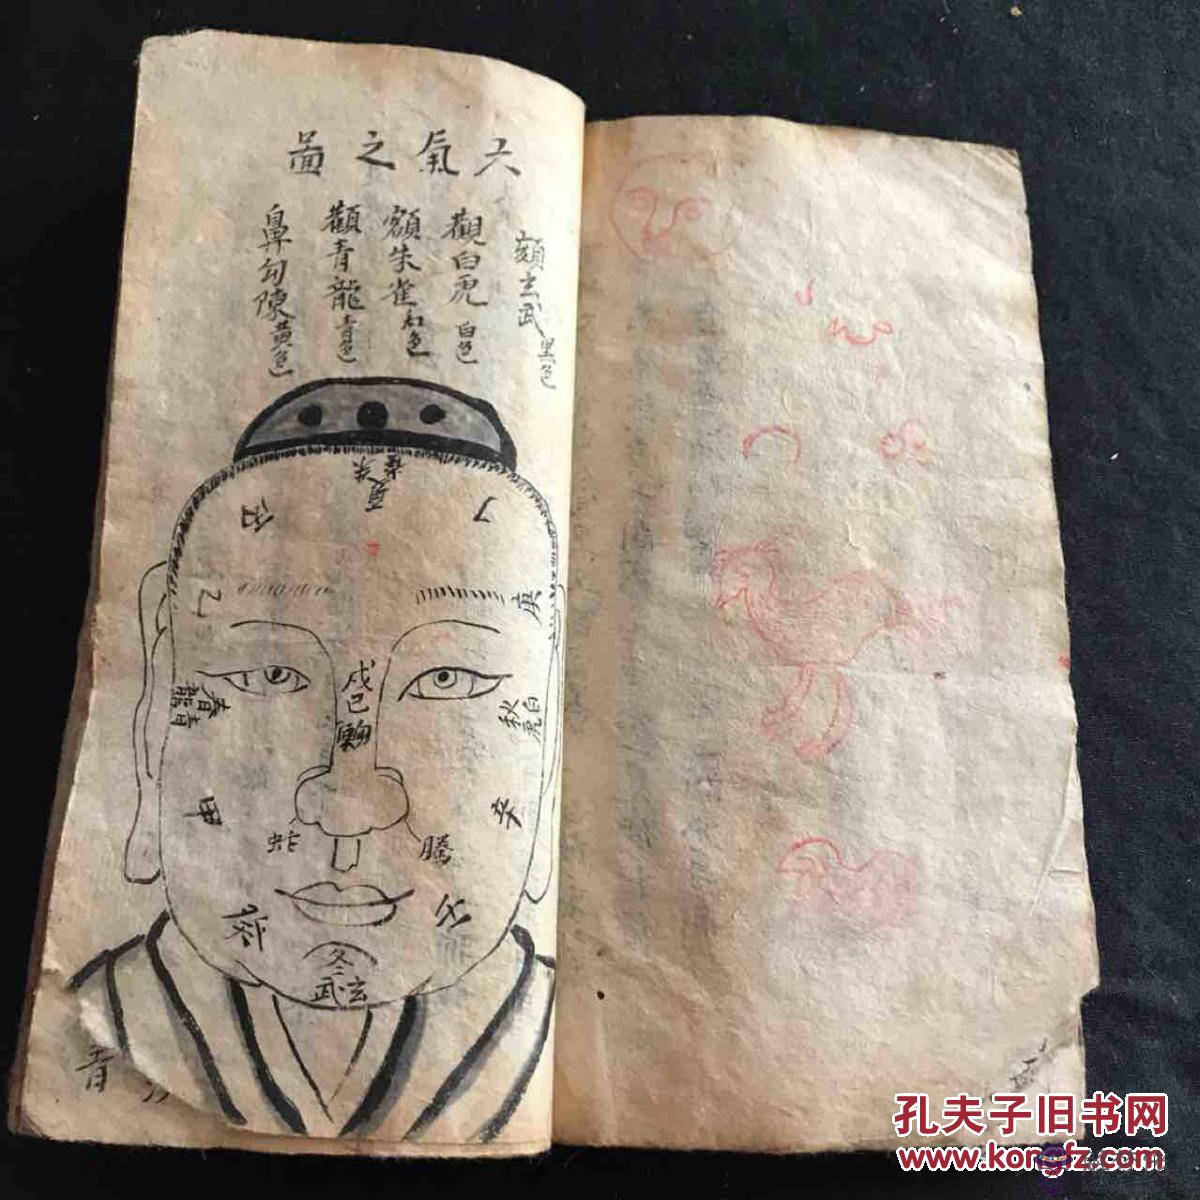 六氣之圖
頦玄武 黑色
觀白虎 白色
額朱雀 紅色
顴青龍 青色
鼻勾陳 黃色
夏 朱雀
丙
丁
乙
庚
戊己
春 青龍
秋 白虎
甲
辛
蛇
騰
癸
冬 玄武
青
孔夫子旧书网
www.kongfz.com